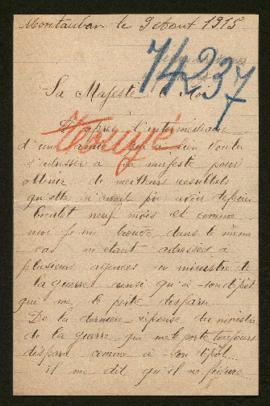 Montauban le 9 Aout 1915
74237
Sa Majesté le Roi
l'intermédiaire
d'une
s'adresser à sa majesté pour
obtenir de meilleurs resultats
qu'elle n'avait pu avoir depuis
bientôt neuf mois et comme
moi je me trouve dans le même
cas m'etant adressée à
plusieurs agences au ministre de
la guerre ainsi qu'à son dépôt
que me le porte disparu
De la derniere réponse du ministre
de la guerre qui me le porte toujours
disparu comme à son dépôt
il me dit qu'il ne figure